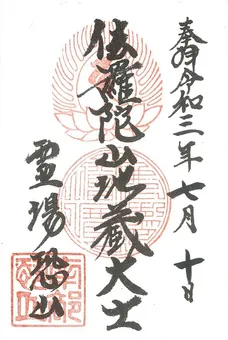 奉拝 令和三年 七月 十日
伽羅陀山地蔵大士
霊場恐山